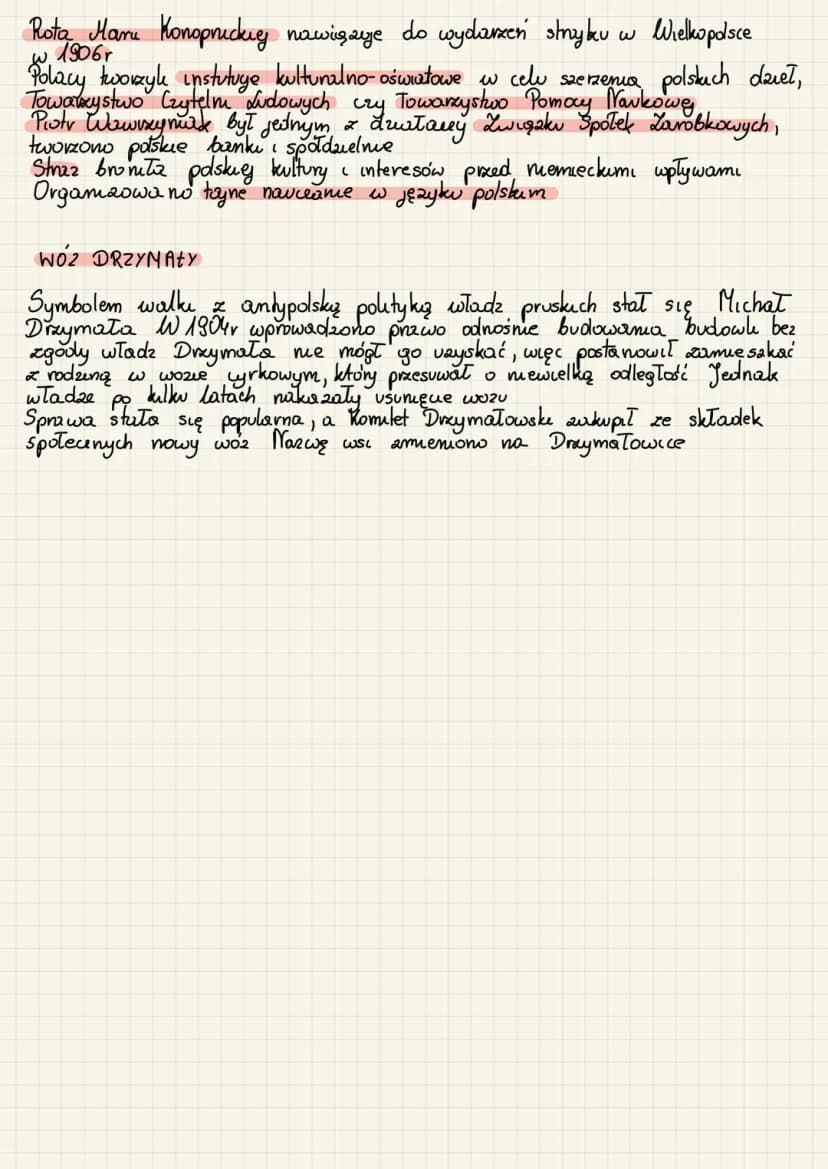 Rota Marii Konopnickiej nawiązuje do wydarzeń strajku w Wielkopolsce
w 1906r
Polacy tworzyli instytucje kulturalno-oświatowe w celu szerzenia polskich dzieł,
Towarzystwo Czytelni Ludowych czy Towarzystwo Pomocy Naukowej
Piotr Wawrzyniak był jednym z działaczy Związku Spółek Zarobkowych,
tworzono polskie banki i spółdzielnie
Straż broniła polskiej kultury i interesów przed niemieckimi wpływami
Organizowano tajne nauczanie w języku polskim
WÓZ DRZYMAŁY
Symbolem walki z antypolską polityką władz pruskich stał się Michał
Drzymała W 1904r wprowadzono prawo odnośnie budowania budowli bez
zgody władz Drzymała nie mógł go uzyskać, więc postanowił zamieszkać
z rodziną w wozie cyrkowym, który przesuwał o niewielką odległość Jednak
władze po kilku latach nakazały usunięcie wozu
Sprawa stała się popularna, a Komitet Drzymałowski zakupił ze składek
społecznych nowy wóz Nazwę wsi zmieniono na Drzymałowice